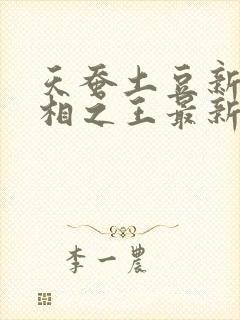 天蚕土豆新
相之王最新
李一农